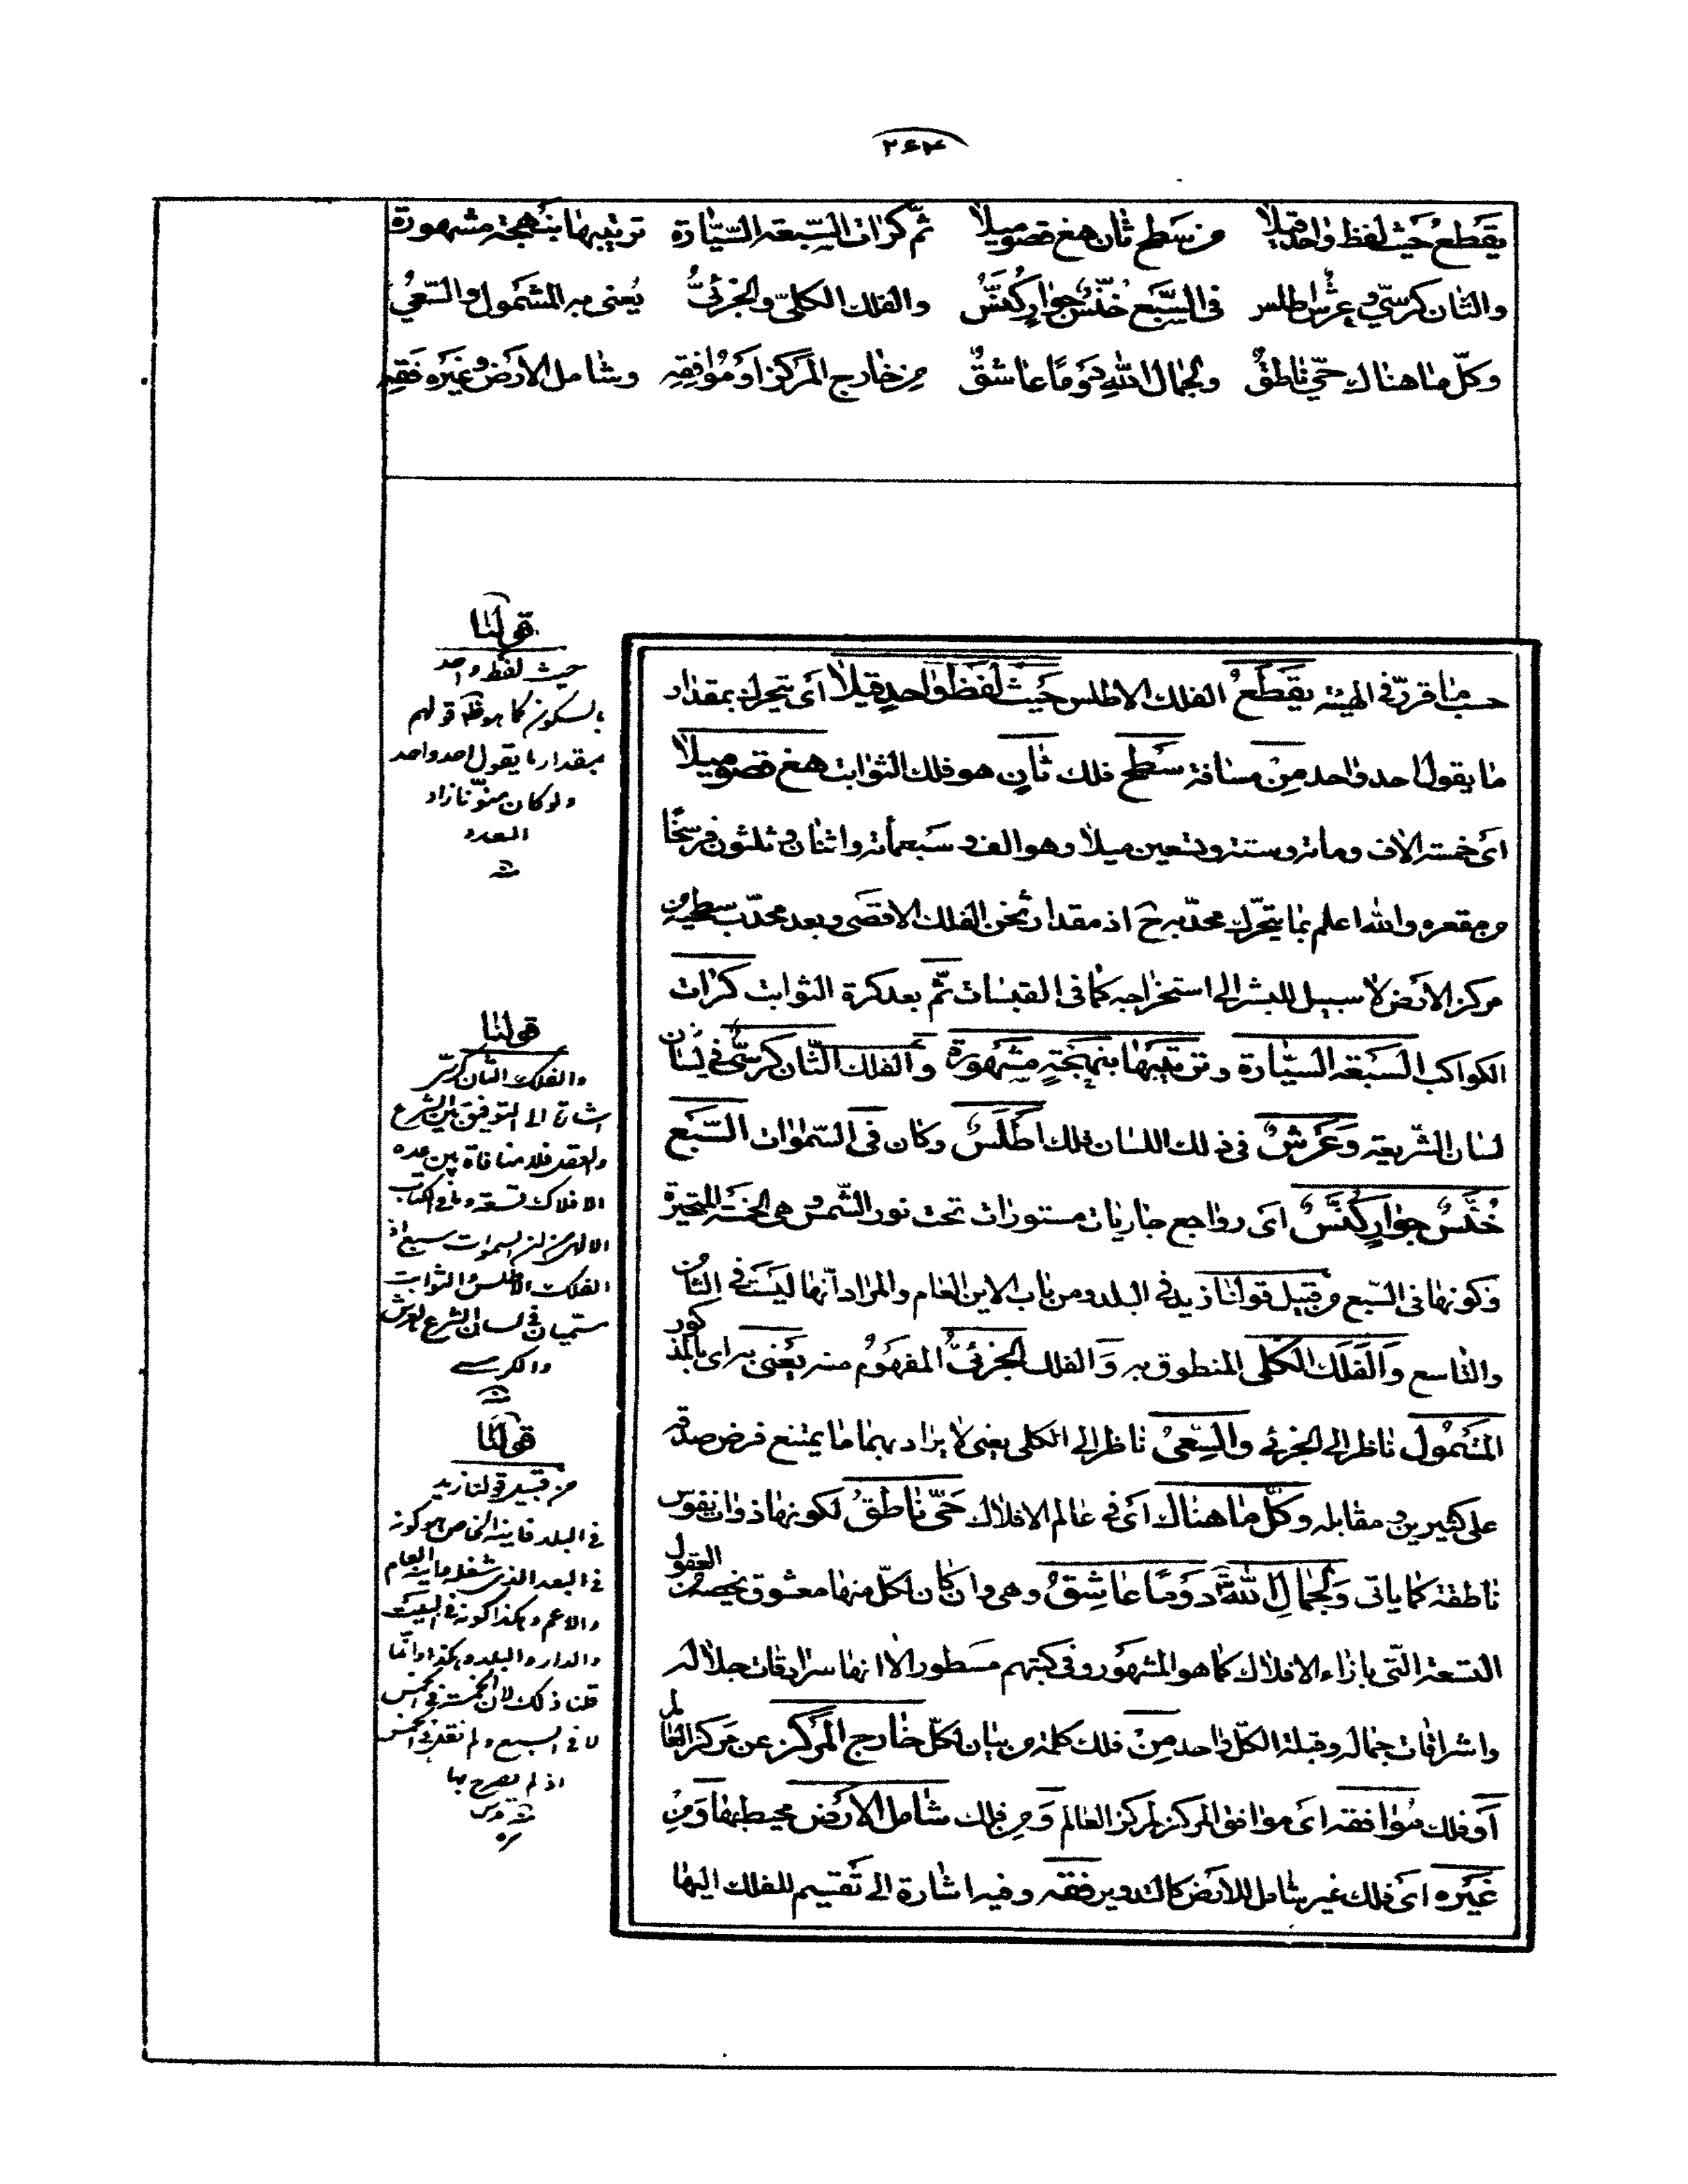 ۲۶۴
يقطع حيث لفظ واحد قيلا من سطح ثان هغ قصو ميلا ثمّ كرات السّبعة السّيّارة ترتيبها بنهجة مشهورة
والثان كرسيّ وعرش اطلس في السّبع خنّس جوار كنّس والفلك الكلّي والجزئيّ يعنى به المشمول والسّعيّ
وكلّ ما هناك حيّ ناطق ولجمال اللّه دوما عاشق من خارج المركز او موافقه وشامل الارض وغيره فقه
حسب ما قرّر في الهيئة يقطع الفلك الاطلس حيث لفظ واحد قيلا اى يتحرك بمقدار
ما يقول احد واحد من مسافة سطح فلك ثان هو فلك الثوابت هغ قصو ميلا
اى خمسة الاف ومائة وستة وتسعين ميلا وهو الف وسبعمائة واثنان وثلثون فرسخا
من مقعره واللّه اعلم بما يتحرّك محدّبه ح اذ مقدار ثخن الفلك الاقصى وبعد محدّب سطحيه من
مركز الارض لا سبيل للبشر الى استخراجه كما في القبسات ثمّ بعد كرة الثوابت كرات
الكواكب السبعة السيّارة وترتيبها بنهجة مشهورة والفلك الثّان كرسيّ في لسان
لسان الشّريعة وعرش في ذلك اللسان فلك اطلس وكان في السّموات السّبع
خنّس جوار كنّس اى رواجع جاريات مستورات تحت نور الشّمس وهى الخمسة المتحيّرة
وكونها في السّبع من قبيل قولنا زيد في البلد ومن باب الاين العام والمراد انّها ليست في الثامن
والتاسع والفلك الكلي المنطوق به والفلك الجزئيّ المفهوم منه يعنى به اى بالمذكور
المشمول ناظر الى الجزئي والسّعيّ ناظر الى الكلي يعني لا يراد بهما ما يمتنع فرض صدقه
على كثيرين ومقابله وكلّ ما هناك اى في عالم الافلاك حيّ ناطق لكونها ذوات نفوس
ناطقة كما ياتى ولجمال اللّه دوما عاشق وهى وان كان لكلّ منها معشوق بخصه من العقول
التسعة التّي بازاء الافلاك كما هو المشهور وفي كتبهم مسطور الا انها سرادقات جلاله
واشراقات جماله وقبلة الكلّ واحد من فلك كلمة من بيان لكلّ خارج المركز عن مركز العالم
او فلك موافقه اى موافق المركز لمركز العالم ومن فلك شامل الارض محيط بها ومن
غيره اى فلك غير شامل للارض كالتدوير فقه وفيه اشارة الى تقسيم للفلك اليها
قولنا
حيث لفظ واحد
بالسكون كما هو ظ قولهم
بمقدار ما يقول احد واحد
ولو كان منوّنا زاد
العدد
قولنا
والفلك الثان كرسيّ
اشارة الى التوفيق بين الشرع
والعقل فلا منافاة بين عدة
الافلاك تسعة وما في الكتاب
الالهي من كون السموات سبع اذ
الفلك الاطلس والثوابت
سمّيان في لسان الشرع بالعرش
والكرسي
قولنا
من قبيل قولنا زيد
في البلد فاينه الخاص هو كونه
في البعد الذي شغله واينه العام
والاعم وهكذا كونه في البيت
والدار والبلد وهكذا وانّما
قلنا ذلك لان الخمسة في الخمس
لا في السبع ولم نقل في الخمس
اذ لم نصرح بها